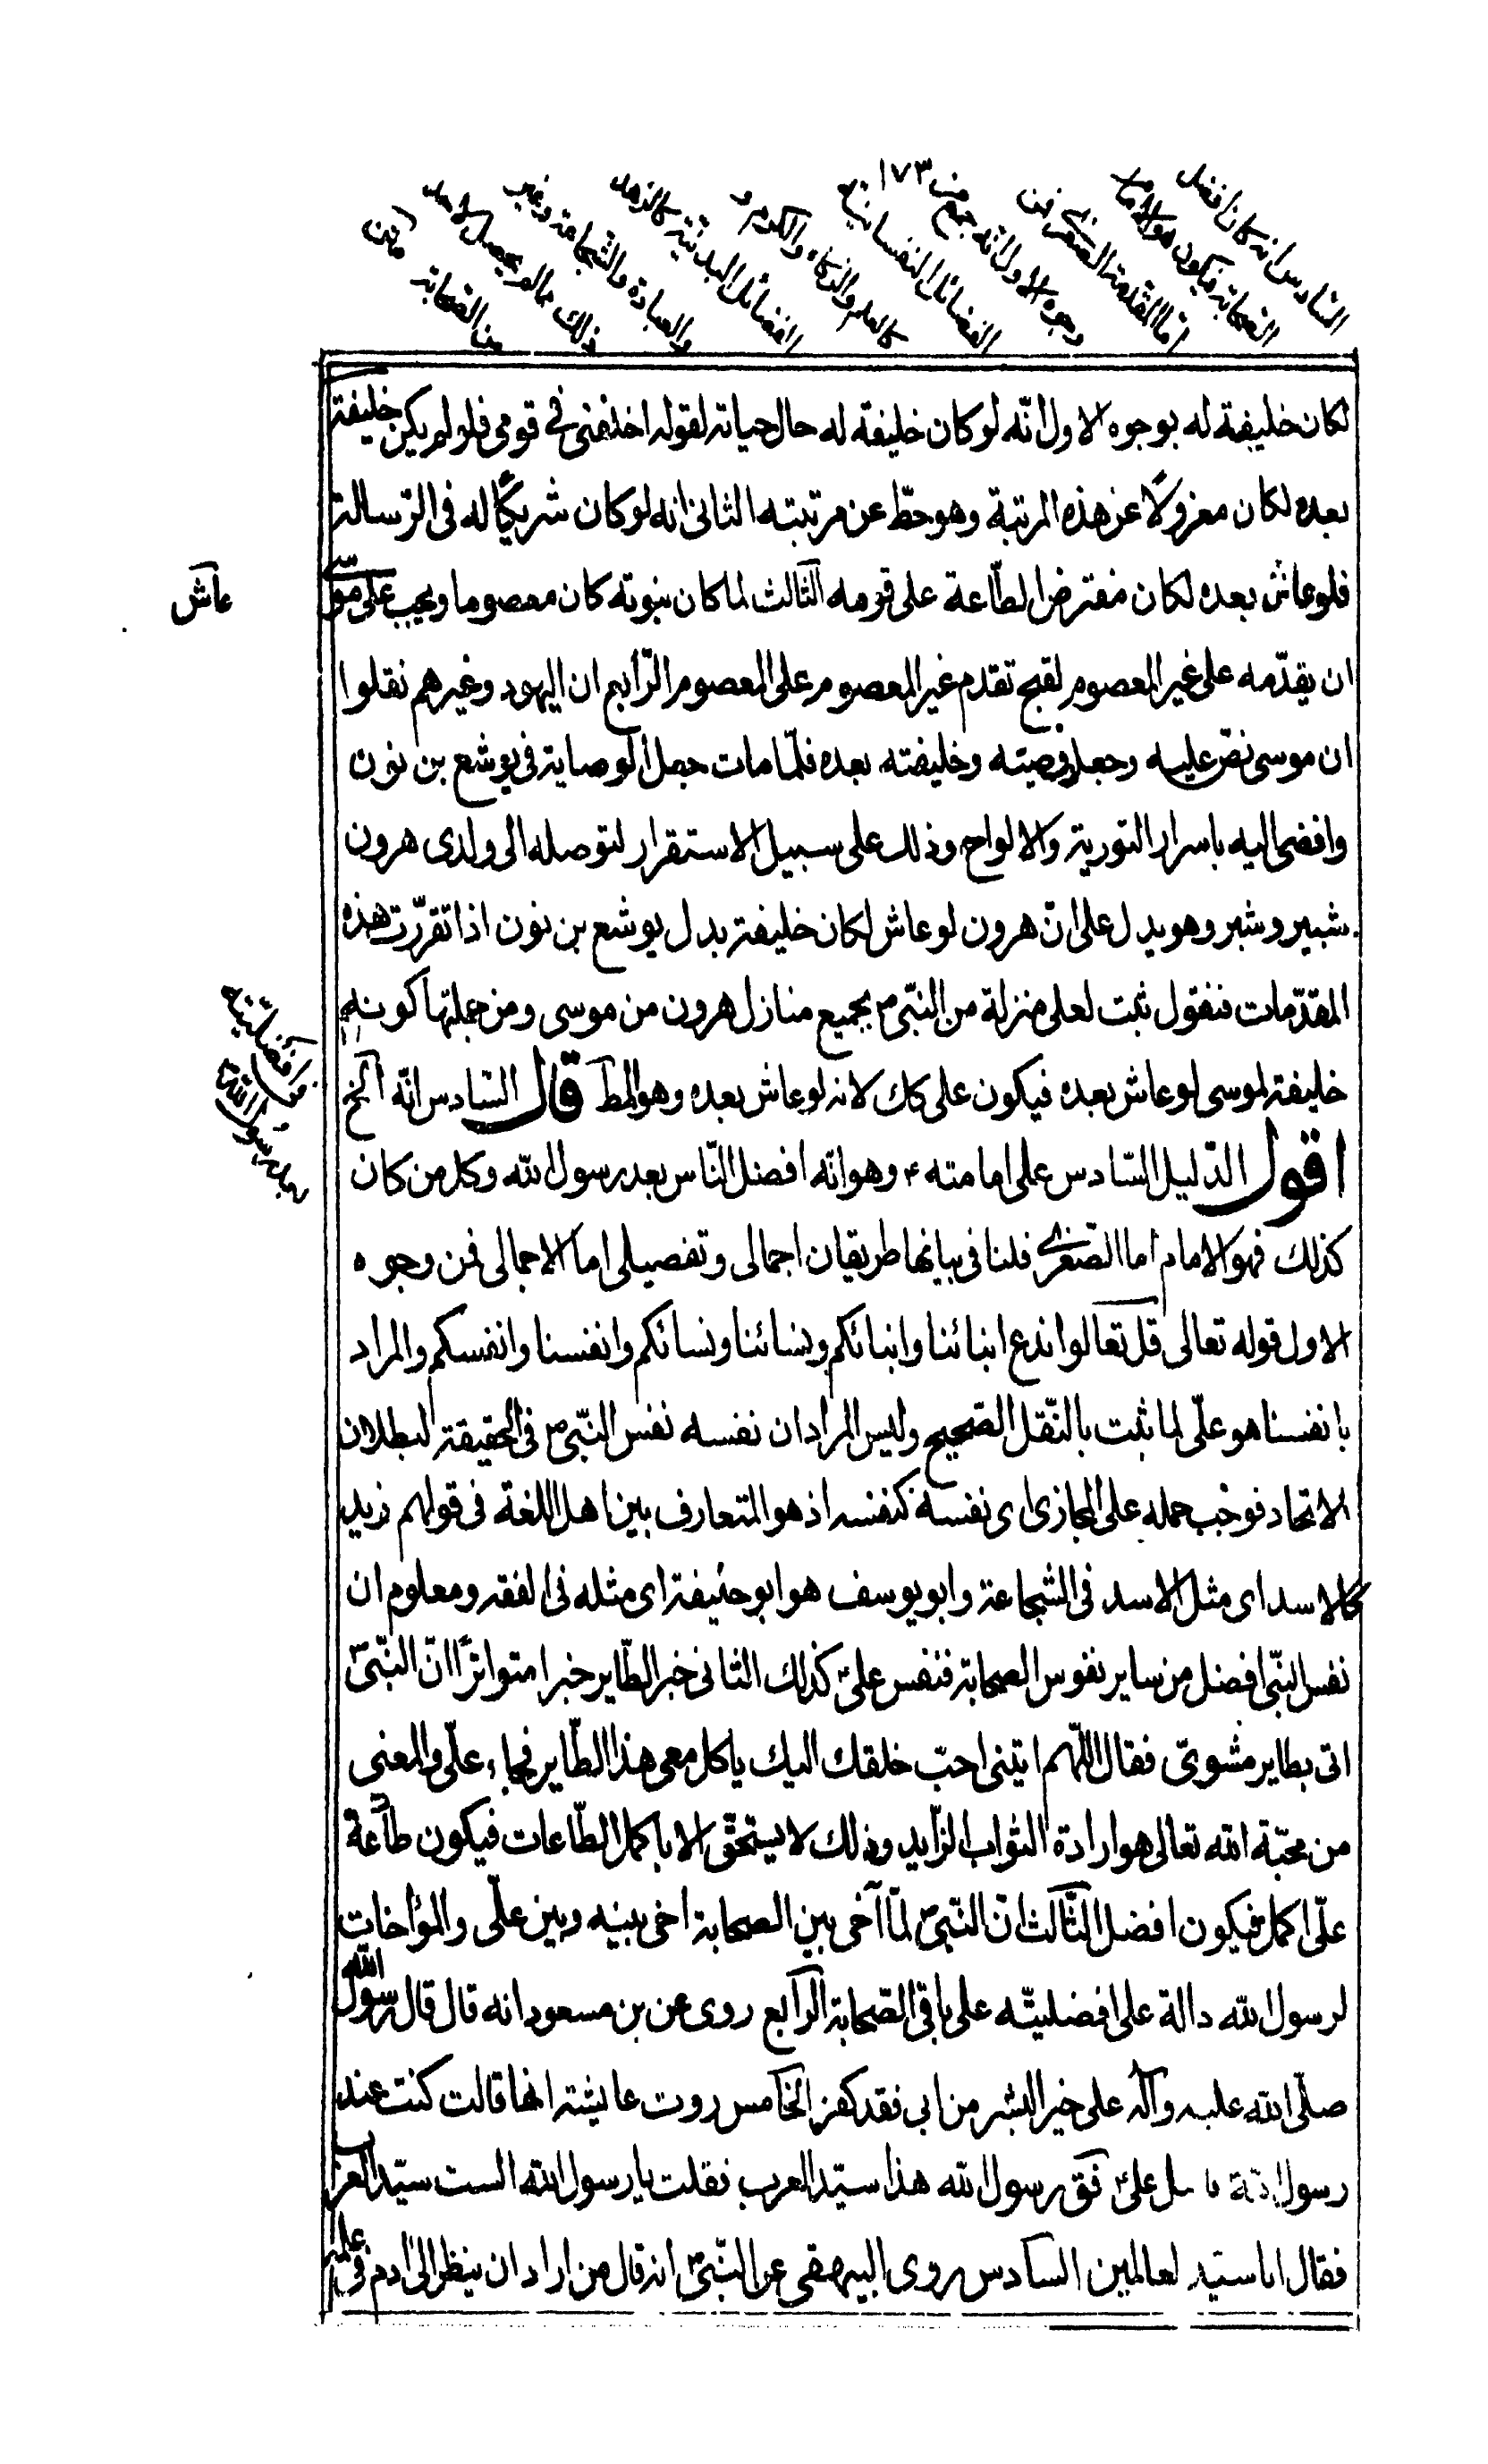 ١٧٣
السادس انه كان افضل
الصحابة فيكون هو الامام
اما المقدمة الصغرى فمن
وجوه الاول انه جمع من
الفضائل النفسانية
كالعلم والذكاء والكرم و
الفضائل البدنية كالزهد
والعبادة والشجاعة وغير
ذلك ما لم يحصل لاحد
من الصحابة
لكان خليفة له بوجوه الاول انّه لو كان خليفة له حال حياته لقوله اخلفنى فى قومى فلو لم يكن خليفة
بعده لكان معزولًا عن هذه المرتبة وهو حطّ عن مرتبته الثانى انه لو كان شريكًا له فى الرّسالة
فلو عاش بعده لكان مفترض الطّاعة على قومه الثالث لما كان بنبوته كان معصوما ويجب على موسى
عاش
ان يقدّمه على غير المعصوم لقبح تقدم غير المعصوم على المعصوم الرّابع ان اليهود وغيرهم نقلوا
ان موسى نصّ عليه وجعله وصيته وخليفته بعده فلمّا مات جعل الوصاية فى يوشع بن نون
وافضى اليه باسرار التورية والالواح وذلك على سبيل الاستقرار لتوصله الى ولدى هرون
شبير وشبر وهو يدل على انّ هرون لو عاش لكان خليفة بدل يوشع بن نون اذا تقرّرت هذه
المقدّمات فنقول ثبت لعلى منزلة من النبّى ص بجميع منازل هرون من موسى ومن جملتها كونه
خليفة لموسى لو عاش بعده فيكون على كك لانه لو عاش بعده وهو المط قال السّادس انّه الخ
فى افضليته
بعد رسول الله
اقول الدّليل السّادس على امامته ع وهو انّه افضل النّاس بعد رسول الله وكل من كان
كذلك فهو الامام اما الصّغرى فلنا فى بيانها طريقان اجمالى وتفصيلى اما الاجمالى فمن وجوه
الاول قوله تعالى قل تعالوا ندع ابنائنا وابنائكم ونسائنا ونسائكم وانفسنا وانفسكم والمراد
بانفسنا هو علّى لما ثبت بالنّقل الصّحيح وليس المراد ان نفسه نفس النّبىّ ص فى الحقيقة لبطلان
الاتحاد فوجب حمله على المجازى اى نفسه كنفسه اذ هو المتعارف بين اهل اللغة فى قولهم زيد
كالاسد اى مثل الاسد فى الشّجاعة وابو يوسف هو ابو حنيفة اى مثله فى الفقه ومعلوم ان
نفس النبّى افضل من ساير نفوس الصحابة فنفس علىّ ع كذلك الثانى خبر الطّاير خبرا متواترًا انّ النّبىّ ص
اتى بطاير مشوىّ فقال اللّهم ايتنى احبّ خلقك اليك ياكل معى هذا الطّاير فجاء علّى والمعنى
من محبّة الله تعالى هو ارادة الثواب الزّايد وذلك لا يستحقّ الا باكمل الطّاعات فيكون طاعة
علّى اكمل فيكون افضل الثّالث انّ النّبىّ ص لمّا آخى بين الصحابة اخى بينه وبين علّى والمؤاخات
لرسول الله دالة على افضليتّه على باقى الصّحابة الرّابع روى عن بن مسعود انه قال قال رسول الله
صلّى الله عليه وآله على خير البشر من ابى فقد كفر الخامس روت عايشة انها قالت كنت عند
رسول الله فاقبل علىّ ع فق رسول الله هذا سيّد العرب فقلت يا رسول الله الست سيّد العرب
فقال انا سيّد العالمين السادس روى البيهقى عن النّبىّ ص انه قال من اراد ان ينظر الى ادم فى علمه